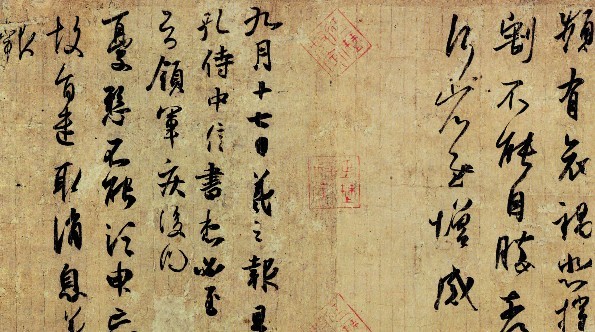 頻有哀禍悲摧
割不能自勝奈
何奈何省慰增感
九月十七日羲之報且
孔侍中信書想必至
不知領軍疾後問
憂懸不能須臾忘
故旨遣取消息羲
報